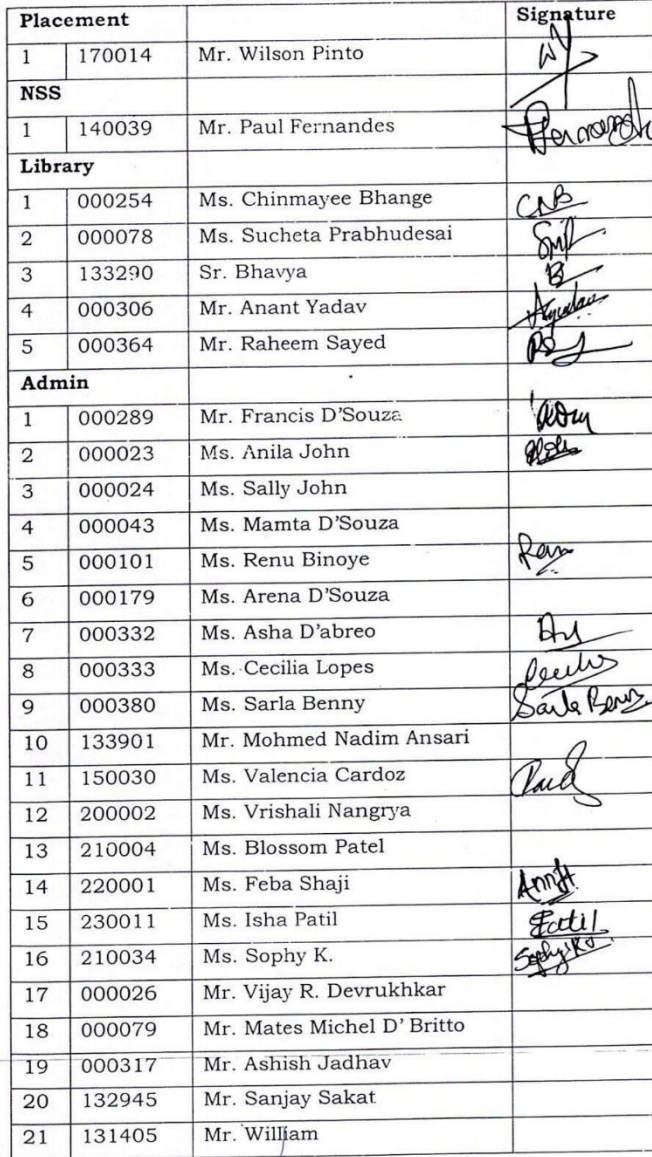 Placement Signature
1 170014 Mr. Wilson Pinto
NSS
1 140039 Mr. Paul Fernandes Fernandes
Library
1 000254 Ms. Chinmayee Bhange CNB
2 000078 Ms. Sucheta Prabhudesai
3 133290 Sr. Bhavya B
4 000306 Mr. Anant Yadav
5 000364 Mr. Raheem Sayed
Admin
1 000289 Mr. Francis D'Souza
2 000023 Ms. Anila John
3 000024 Ms. Sally John
4 000043 Ms. Mamta D'Souza
5 000101 Ms. Renu Binoye
6 000179 Ms. Arena D'Souza
7 000332 Ms. Asha D'abreo
8 000333 Ms. Cecilia Lopes
9 000380 Ms. Sarla Benny Sarla Benny
10 133901 Mr. Mohmed Nadim Ansari
11 150030 Ms. Valencia Cardoz
12 200002 Ms. Vrishali Nangrya
13 210004 Ms. Blossom Patel
14 220001 Ms. Feba Shaji
15 230011 Ms. Isha Patil Patil
16 210034 Ms. Sophy K. Sophy K
17 000026 Mr. Vijay R. Devrukhkar
18 000079 Mr. Mates Michel D' Britto
19 000317 Mr. Ashish Jadhav
20 132945 Mr. Sanjay Sakat
21 131405 Mr. William